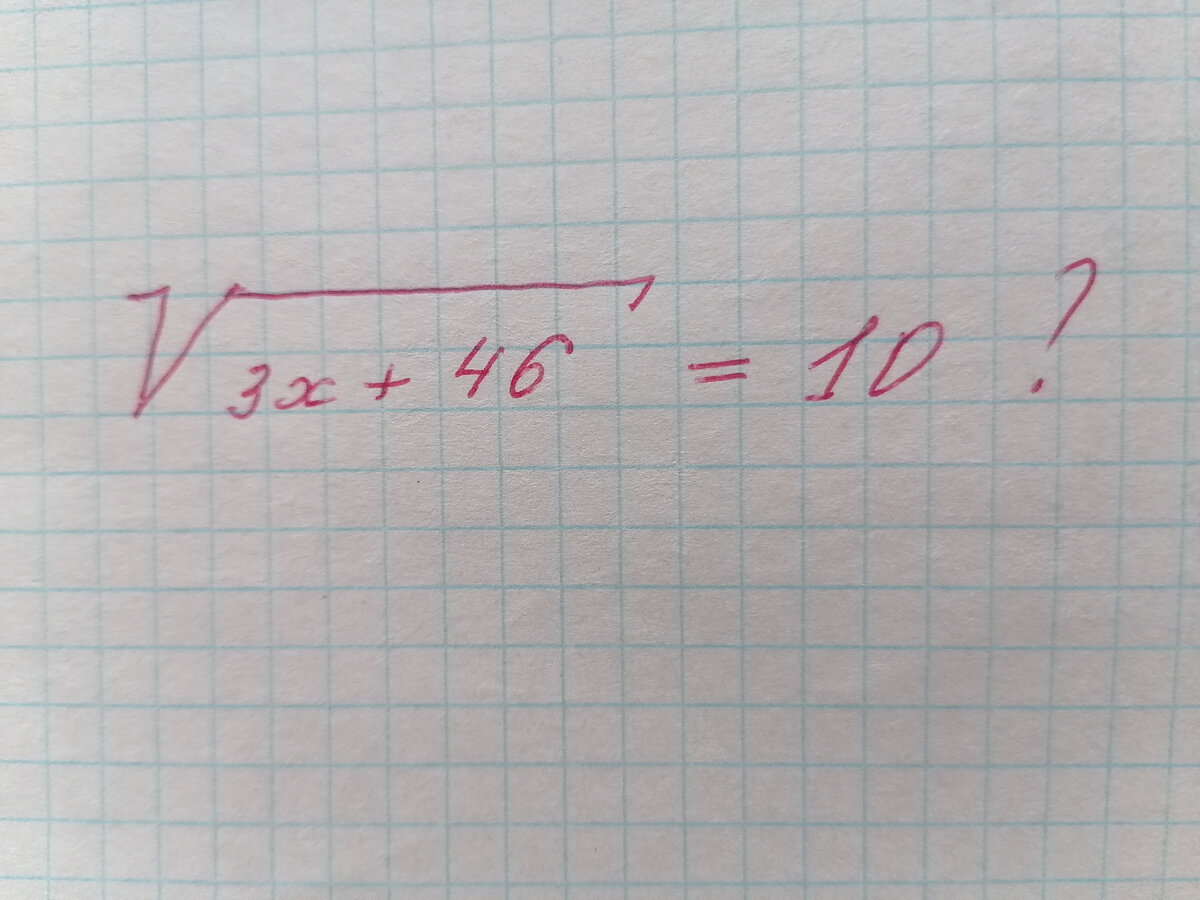 √(3x + 46) = 10 ?